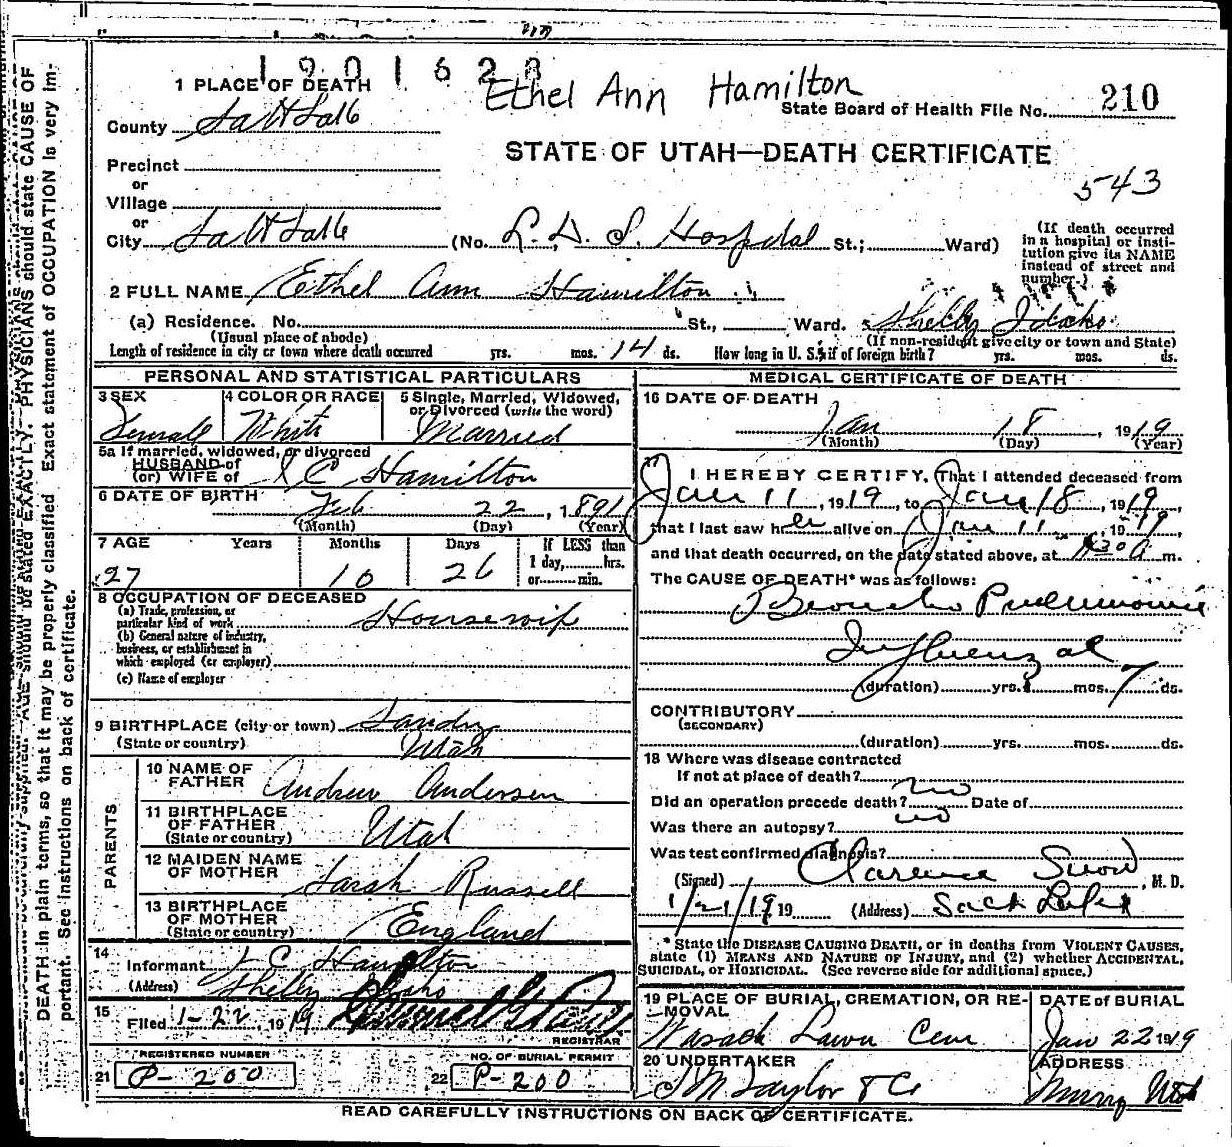 1901628
Ethel Ann Hamilton
1 PLACE OF DEATH
State Board of Health File No. 210
County Salt Lake
STATE OF UTAH—DEATH CERTIFICATE
Precinct
543
or
Village
or
City Salt Lake (No. L. D. S. Hospital St.; Ward)
(If death occurred in a hospital or institution give its NAME instead of street and number.)
2 FULL NAME Ethel Ann Hamilton
(a) Residence. No. St., Ward. Shelly Idaho
(Usual place of abode) (If non-resident give city or town and State)
Length of residence in city or town where death occurred yrs. mos. 14 ds. How long in U. S. if of foreign birth? yrs. mos. ds.
PERSONAL AND STATISTICAL PARTICULARS
3 SEX 4 COLOR OR RACE 5 Single, Married, Widowed,
or Divorced (write the word)
Female White Married
5a If married, widowed, or divorced
HUSBAND of
(or) WIFE of C Hamilton
6 DATE OF BIRTH Feb 22, 1891
(Month) (Day) (Year)
7 AGE Years Months Days If LESS than
1 day, hrs.
or min.
27 10 26
8 OCCUPATION OF DECEASED
(a) Trade, profession, or
particular kind of work Housewife
(b) General nature of industry,
business, or establishment in
which employed (or employer)
(c) Name of employer
9 BIRTHPLACE (city or town) Sandy
(State or country) Utah
PARENTS
10 NAME OF
FATHER Andrew Andersen
11 BIRTHPLACE
OF FATHER
(State or country) Utah
12 MAIDEN NAME
OF MOTHER Sarah Russell
13 BIRTHPLACE
OF MOTHER
(State or country) England
14
Informant C Hamilton
(Address) Shelly Idaho
15
Filed 1-22, 1919
REGISTRAR
REGISTERED NUMBER NO. OF BURIAL PERMIT
21 P-200 22 P-200
MEDICAL CERTIFICATE OF DEATH
16 DATE OF DEATH
Jan 18, 1919
(Month) (Day) (Year)
17 I HEREBY CERTIFY, That I attended deceased from
Jan 11, 1919, to Jan 18, 1919,
that I last saw her alive on Jan 11, 1919
and that death occurred, on the date stated above, at a m.
The CAUSE OF DEATH* was as follows:
Broncho Pneumonia
Influenzal
(duration) yrs. mos. 7 ds.
CONTRIBUTORY
(SECONDARY)
(duration) yrs. mos. ds.
18 Where was disease contracted
If not at place of death?
Did an operation precede death? no Date of
Was there an autopsy? no
Was test confirmed diagnosis?
(Signed) Clarence Snow, M. D.
1/21/19 19 (Address) Salt Lake
* State the DISEASE CAUSING DEATH, or in deaths from VIOLENT CAUSES,
state (1) MEANS AND NATURE OF INJURY, and (2) whether ACCIDENTAL,
SUICIDAL, or HOMICIDAL. (See reverse side for additional space.)
19 PLACE OF BURIAL, CREMATION, OR RE-
MOVAL
DATE of BURIAL
Wasach Lawn Cem Jan 22 1919
20 UNDERTAKER ADDRESS
Taylor & Co Murray Utah
READ CAREFULLY INSTRUCTIONS ON BACK OF CERTIFICATE.
AGE should be stated EXACTLY. PHYSICIANS should state CAUSE OF
DEATH in plain terms, so that it may be properly classified Exact statement of OCCUPATION is very Im-
portant. See instructions on back of certificate.